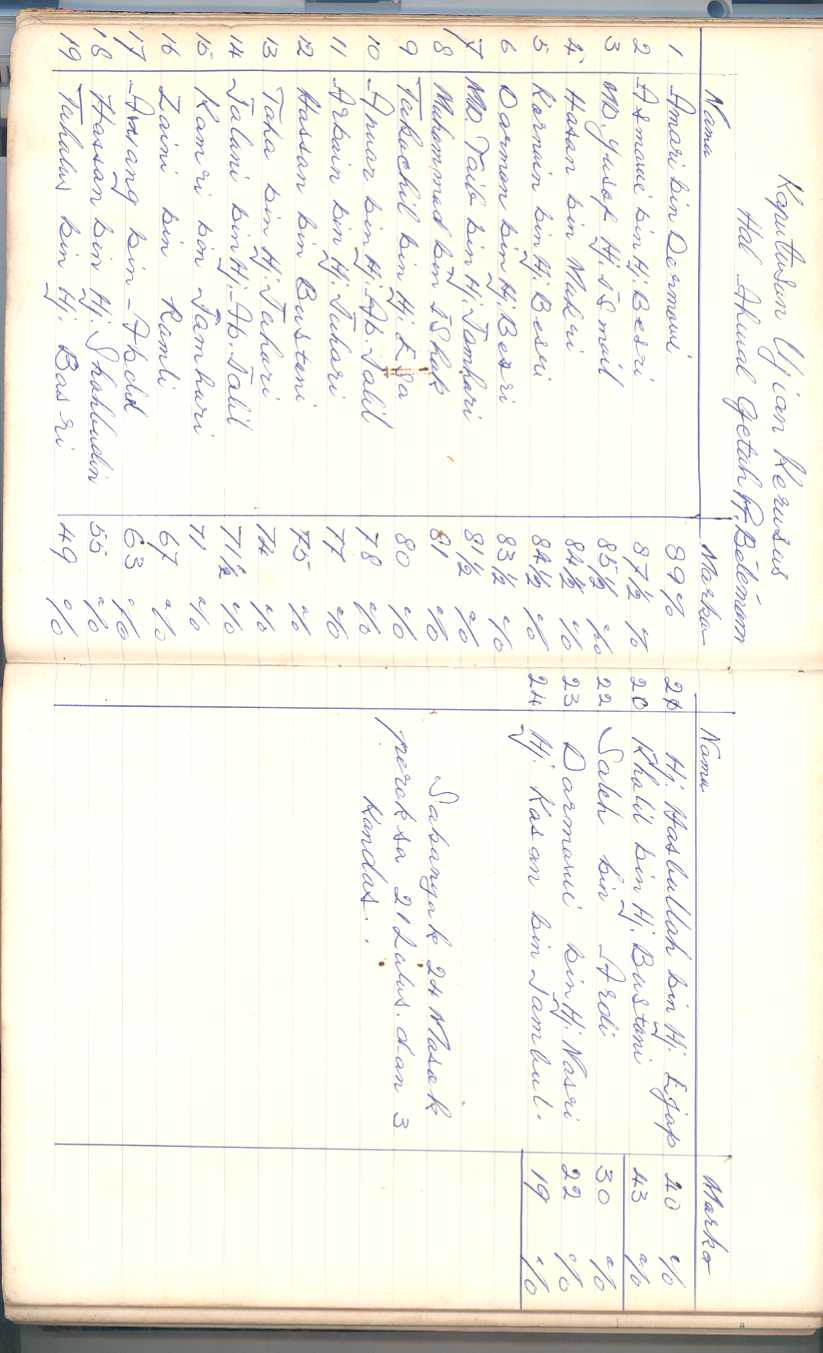 Kaputusan Ujian Kursus
Hal Ahwal Getah
Nama Marka
1 Amari bin Dermawi 89%
2 Asmawi bin Hj Besri 87½ %
3 MD. Yusof Hj. ISmail 85½ %
4 Hasan bin Makri 84½ %
5 Kornain bin Hj Besri 84½ %
6 Darman bin Hj Besri 83½ %
7 MD. Taib bin Hj. Jamhari 81½ %
8 Muhammad bin IShak 81 %
9 bin Hj. 80 %
10 Anuar bin Hj. Ab. Jalil 78 %
11 bin Hj. Juhari 77 %
12 Hassan bin Bustani 75 %
13 Taha bin Hj. Juhari 74 %
14 Jalani bin Hj. Ab. Jalil 71½ %
15 Kamri bin Jamhuri 71 %
16 Zaini bin Ramli 67 %
17 Awang bin 63 %
18 Hassan bin Hj. Shahbudin 55 %
19 bin Hj. Basri 49 %
Nama Marka
21 Hj. Hasbullah bin Hj. 40 %
20 Khalil bin Hj. Bustani 43 %
22 Saleh bin Ardi 30 %
23 Darmawi bin Hj. Nasri 22 %
24 Hj. Kasan bin Jambul. 19 %
Sabanyak 24 Masok
pereksa 21 Lulus. dan 3
Kandas.